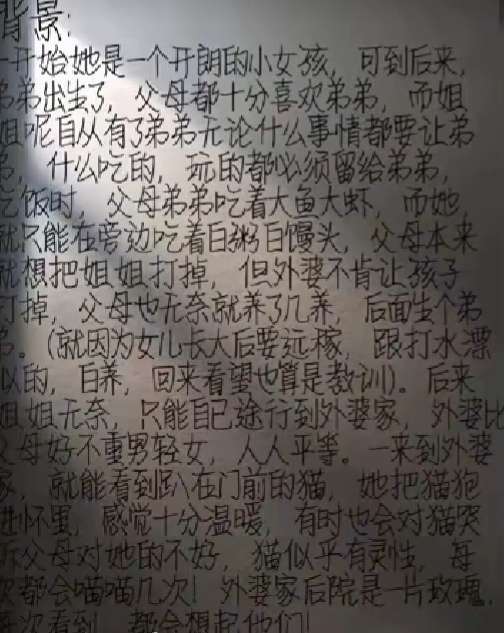 背景:
一开始她是一个开朗的小女孩，可到后来，
弟弟出生了，父母都十分喜欢弟弟，而姐
姐呢自从有了弟弟无论什么事情都要让弟
弟，什么吃的，玩的都必须留给弟弟，
吃饭时，父母弟弟吃着大鱼大虾，而她，
就只能在旁边吃着白粥白馒头，父母本来
就想把姐姐打掉，但外婆不肯让孩子
打掉，父母也无奈就养了几养，后面生个弟
弟。(就因为女儿长大后要远稼，跟打水漂
似的，白养，回来看望也算是教训)。后来
姐姐无奈，只能自己途行到外婆家，外婆比
父母好不重男轻女，人人平等。一来到外婆
家，就能看到趴在门前的猫，她把猫抱
进怀里，感觉十分温暖，有时也会对猫哭
诉父母对她的不好，猫似乎有灵性，每
次都会喵喵几次！外婆家后院是一片玫瑰，
每次看到，都会想起他们！